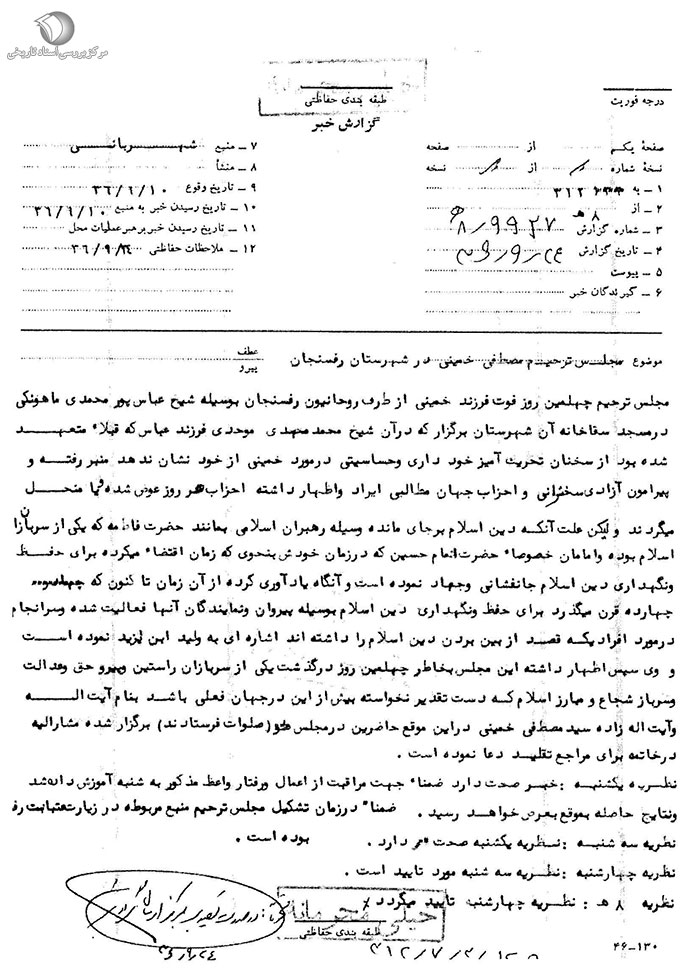 مرکز بررسی اسناد تاریخی
طبقه بندی حفاظتی
گزارش خبر
درجه فوریت
صفحهٔ یکم از صفحه
نسخهٔ شماره از نسخه
۱ – به ۳۱۲
۲ – از ۸ هـ
۳ – شماره گزارش ۸/۹۹۲۷ هـ
۴ – تاریخ گزارش ۳۶/۹/۲۴
۵ – پیوست
۶ – گیرندگان خبر
۷ – منبع شهربانی
۸ – منشأ
۹ – تاریخ وقوع ۳۶/۶/۱۰
۱۰ – تاریخ رسیدن خبر به منبع ۳۶/۶/۱۰
۱۱ – تاریخ رسیدن خبر برهبر عملیات محل
۱۲ – ملاحظات حفاظتی ۳۶/۹/۲۴
موضوع مجلس ترحیم مصطفی خمینی در شهرستان رفسنجان
عطف
پیرو
مجلس ترحیم چهلمین روز فوت فرزند خمینی از طرف روحانیون رفسنجان بوسیله شیخ عباس پور محمدی ماهونکی
درمسجد سقاخانه آن شهرستان برگزار که درآن شیخ محمد مهدی موحدی فرزند عباس که قبلا" متعهد
شده بود از سخنان تحریک آمیز خود داری وحساسیتی درمورد خمینی از خود نشان ندهد منبر رفته و
پیرامون آزادی سخنرانی و احزاب جهان مطالبی ایراد واظهار داشته احزاب هر روز عوض شده و یا منحل
میگردند و لیکن علت آنکه دین اسلام برجای مانده وسیله رهبران اسلامی بمانند حضرت فاطمه که یکی از سربازان
اسلام بوده وامامان خصوصا" حضرت امام حسین که درزمان خودش بنحوی که زمان اقتضاء میکرده برای حفظ
ونگهداری دین اسلام جانفشانی وجهاد نموده است و آنگاه یادآوری کرده از آن زمان تا کنون که
چهارده قرن میگذرد برای حفظ ونگهداری دین اسلام بوسیله پیروان ونمایندگان آنها فعالیت شده وسرانجام
درمورد افرادیکه قصد از بین بردن دین اسلام را داشته اند اشاره ای به ولید ابن یزید نموده است
و وی سپس اظهار داشته این مجلس بخاطر چهلمین روز درگذشت یکی از سربازان راستین وپیرو حق وعدالت
وسرباز شجاع و مبارز اسلام که دست تقدیر نخواسته بیش از این درجهان فعلی باشد بنام آیت الله
وآیت اله زاده سید مصطفی خمینی دراین موقع حاضرین درمجلس (صلوات فرستادند) برگزار شده مشارالیه
درخاتمه برای مراجع تقلید دعا نموده است .
نظریه یکشنبه : خبر صحت دارد ضمنا" جهت مراقبت از اعمال ورفتار واعظ مذکور به شنبه آموزش داده شد
ونتایج حاصله بموقع بعرض خواهد رسید . ضمنا" درزمان تشکیل مجلس ترحیم منبع مربوطه در زیارت عتبات
بوده است .
نظریه سه شنبه : نظریه یکشنبه صحت دارد .
نظریه چهارشنبه : نظریه سه شنبه مورد تایید است .
نظریه ۸ هـ : نظریه چهارشنبه تایید میگردد
خیلی محرمانه
طبقه بندی حفاظتی
۳۶/۹/۲۴
۴۶–۱۳۰